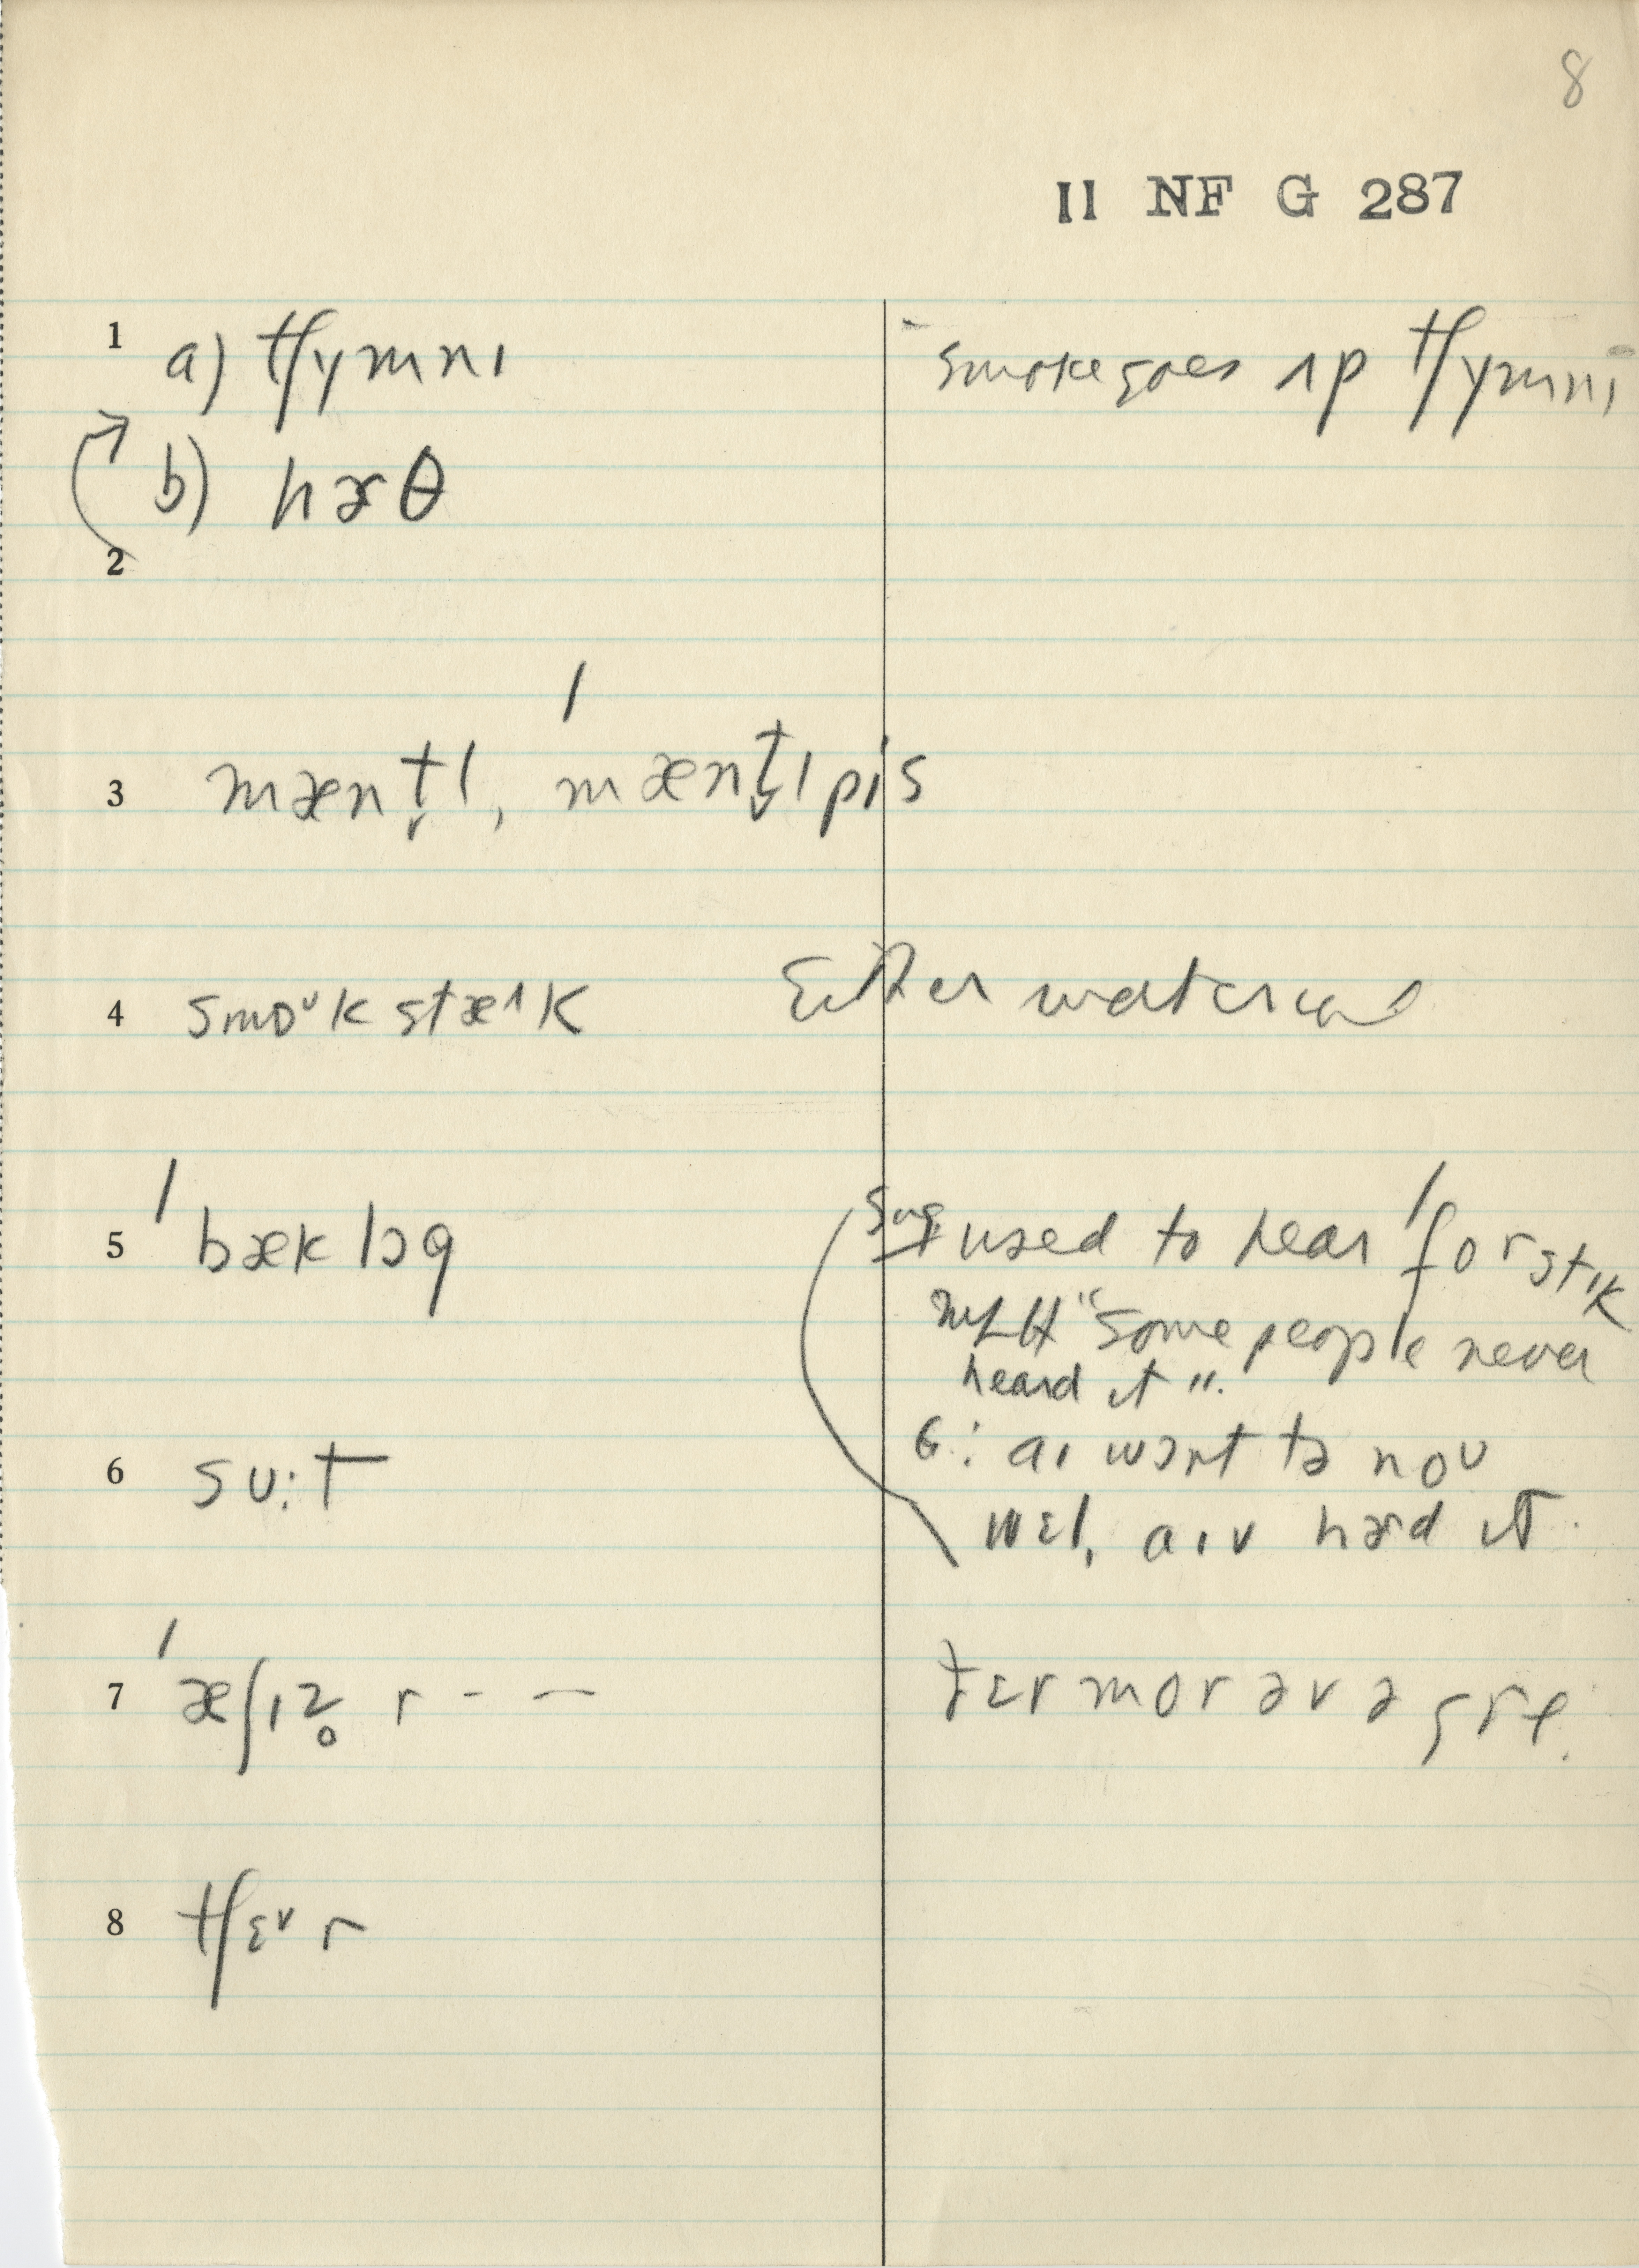 8
II NF G 287
1 a) tʃymnɪ smoke goes ʌp tʃymnɪ
b) hɚθ
2
3 mæntl̬, ˈmæntl̬pis
4 smoᶷk stæᶦk Either
5 ˈbæklɔg sug. used to hear ˈforstɪk
"Some people never
heard it".
G: aɪ wɔnt tə noʊ
6 sʊ:t wɛl, aɪv hɚd it.
7 ˈæʃɪz̥ r - — ðɛr mor əv ə gre.
8 tʃɛᵛr